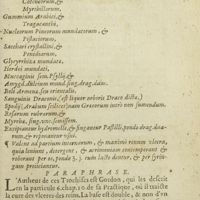 Cotoneorum, &
Myrtillorum,
Gummium Arabici, &
Tragacanthi,
Nucleorum Pineorum mundatorum, &
Pistaciorum,
Sacchari crystallini, &
Penidiarum,
Glycyrrhizæ mundatæ,
Hordei mundati,
Mucaginis sem. Psyllij, &
Amygd. dulcium mund. sing. drag. duas.
Boli Armenæ seu orientalis,
Sanguinis Draconis, (est liquor arboris Draco dicta,)
Spodij,
Rosarum rubrarum, &
Myrrhæ, sing. scr. semissem.
Excipiantur hydromelite, & fingantur Pastilli, pondo drag. duarum, & reponantur usui.
Valent ad partium internarum, & maximè renum ulcera,
quia leniunt, detergunt, & astrictione opitulantur &
roborant per os, pondo 3. j. cum lacte dentur, & per syringam proiiciantur.
PARAPHRASE.
L'Autheur de ces Trochisques est Gordon, qui les descrit
en la particule 6. chap. 10 de sa Practique, où il traicte
la cure des ulceres des reins. La base est double, & non d'un